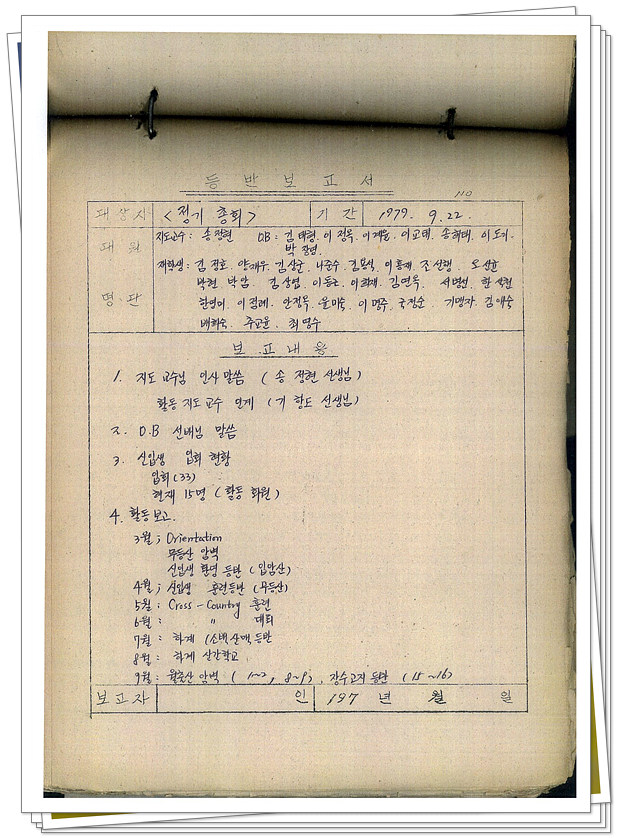 등 반 보 고 서
110
대상지 <정기 총회> 기 간 1979. 9. 22.
대 원 명 단
지도교수: 송정현 OB: 김태형. 이정옥. 이계윤. 이교태. 송해태. 이도
박
재학생: 김정호. 양재우. 김상균. 나종수. 김용식. 이흥재. 조선행. 오선균
박현. 박암. 김상엽. 이동. 김연옥. 서명선.
한영미. 이결례. 안정옥. 윤미숙. 이명주. 국정순. 기맹자. 김애숙
배하숙. 주교운. 최영수
보 고 내 용
1. 지도 교수님 인사 말씀 (송 정현 선생님)
활동 지도교수 인계 (기 항도 선생님)
2. O.B 선배님 말씀
3. 신입생 입회 현황
입회 (33)
현재 15명 (활동 회원)
4. 활동보고.
3월; Orientation
무등산 암벽
신입생 환영 등반 (입암산)
4월; 신입생 훈련등반 (무등산)
5월: Cross-Country 훈련
6월: " 대회
7월: 하계 (소백산맥 등반
8월: 하계 산간학교
9월: 월출산 암벽 (1~2, 8~9). 장수고지 등반 (15~16)
보고자 인 197 년 월 일